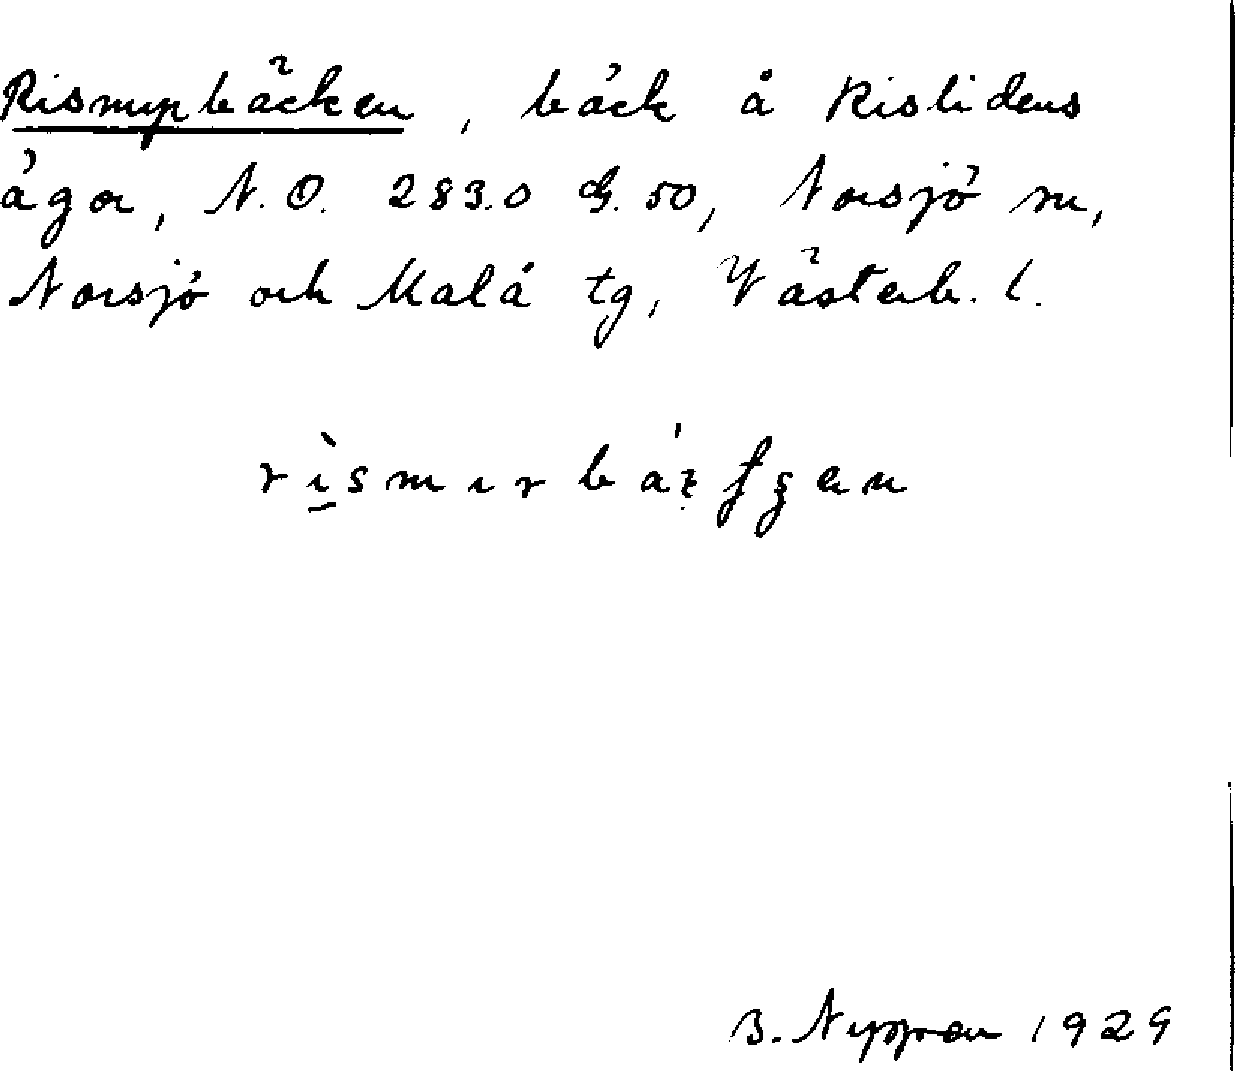 Rismyrbäcken, bäck å Rislidens
ägor, N.O. 283.0 G. 50, Norsjö sn,
Norsjö och Malå tg, Västerb. l.
B. 1929